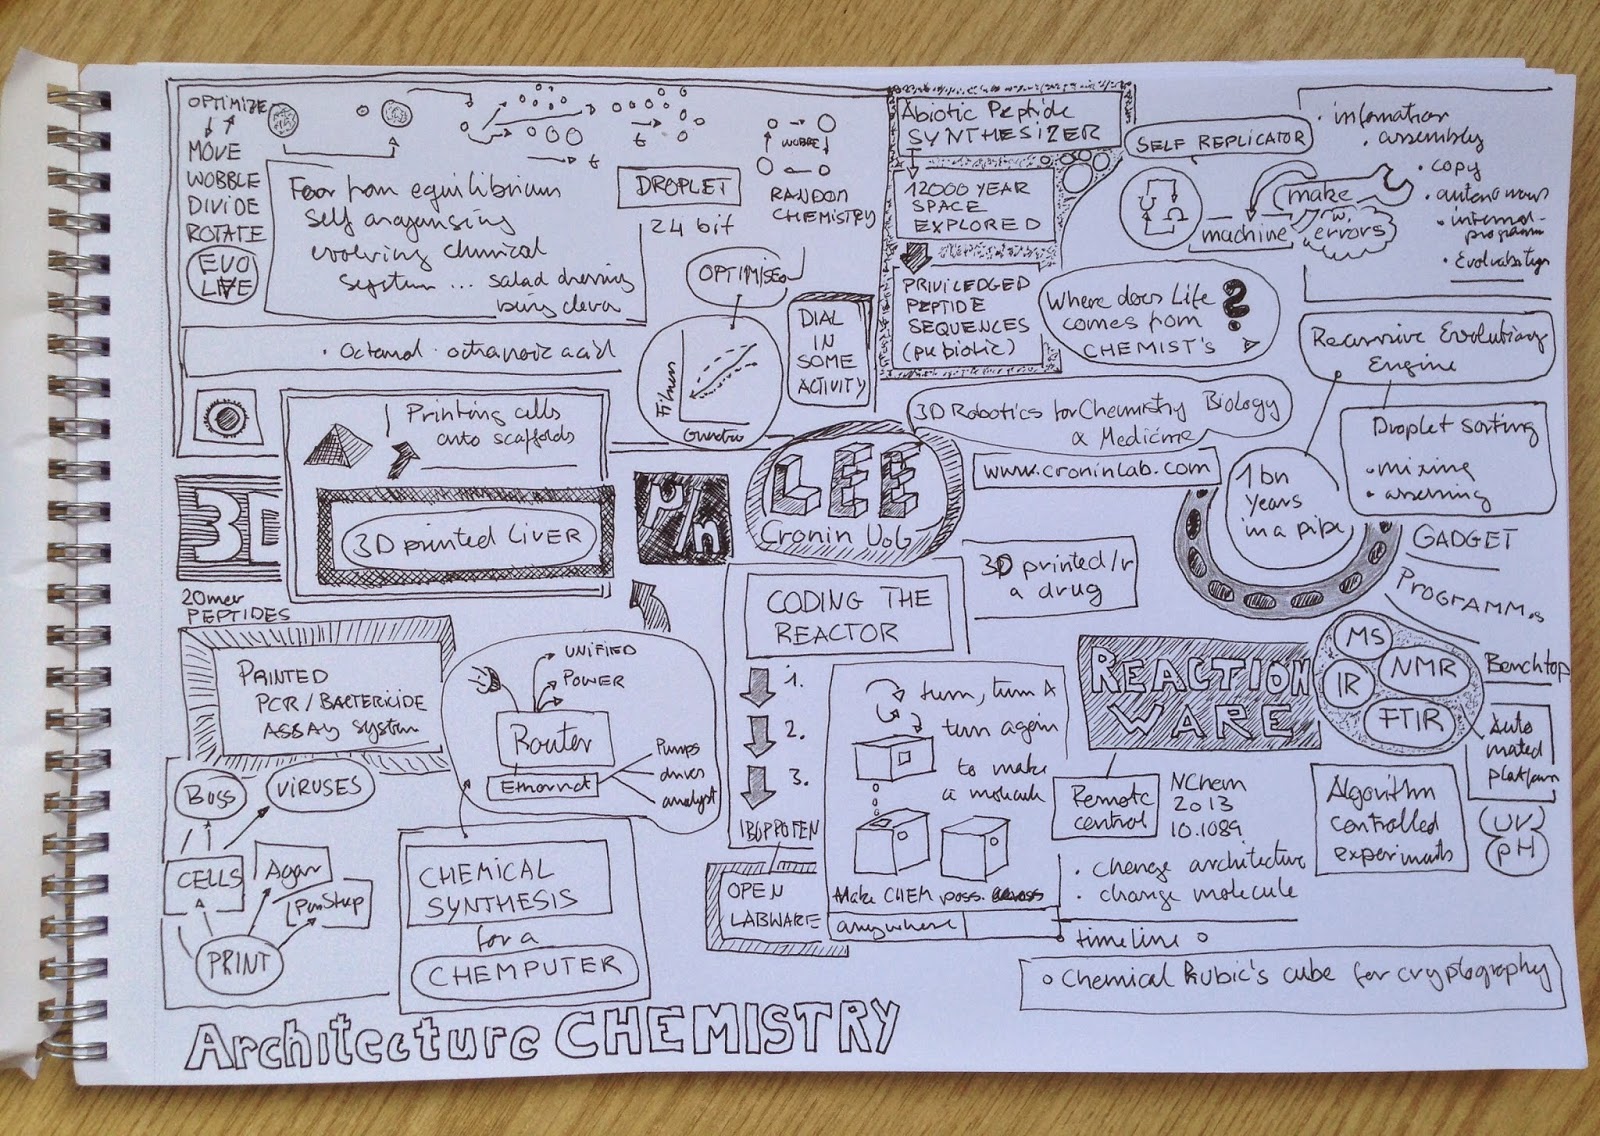 OPTIMIZE
MOVE
WOBBLE
DIVIDE
ROTATE
EVO
LIVE
Far from equilibrium
self arganising
evolving chemical
system ... salad dressing
being clever
t
t
DROPLET
24 bit
WOBBLE
RANDOM
CHEMISTRY
OPTIMISED
DIAL
IN
SOME
ACTIVITY
Fitness
• Octanol • octanoic acid
Abiotic Peptide
SYNTHESIZER
12000 YEAR
SPACE
EXPLORED
PRIVILEDGED
PEPTIDE
SEQUENCES
(prebiotic)
SELF REPLICATOR
make
machine
w.
errors
• information
• assembly
• copy
• autonomous
• internal
program
• Evolvability
Where does Life
comes from
CHEMIST'S
?
Recursive Evolutionary
Engine
Droplet sorting
• mixing
• assessing
1 bn
years
in a pipe
3D Robotics for Chemistry Biology
& Medicine
www.croninlab.com
LEE
Cronin UoG
Printing cells
onto scaffolds
3D
3D printed LIVER
20mer
PEPTIDES
PRINTED
PCR / BACTERICIDE
ASSAY system
UNIFIED
POWER
Router
Ethernet
Pumps
drives
analyst
Bugs
VIRUSES
CELLS
Agar
PRINT
CHEMICAL
SYNTHESIS
for a
CHEMPUTER
CODING THE
REACTOR
1.
2.
3.
IBUPROFEN
OPEN
LABWARE
3D printed/r
a drug
turn, turn &
turn again
to make
a molecule
Make CHEM poss.
anywhere
REACTION
WARE
Remote
control
NChem
2013
10.1089
• change architecture
• change molecule
timeline
Chemical Rubic's cube for cryptography
GADGET
Benchtop
MS
NMR
IR
FTIR
Auto
mated
platform
UV
pH
Algorithm
controlled
experiments
Architecture CHEMISTRY